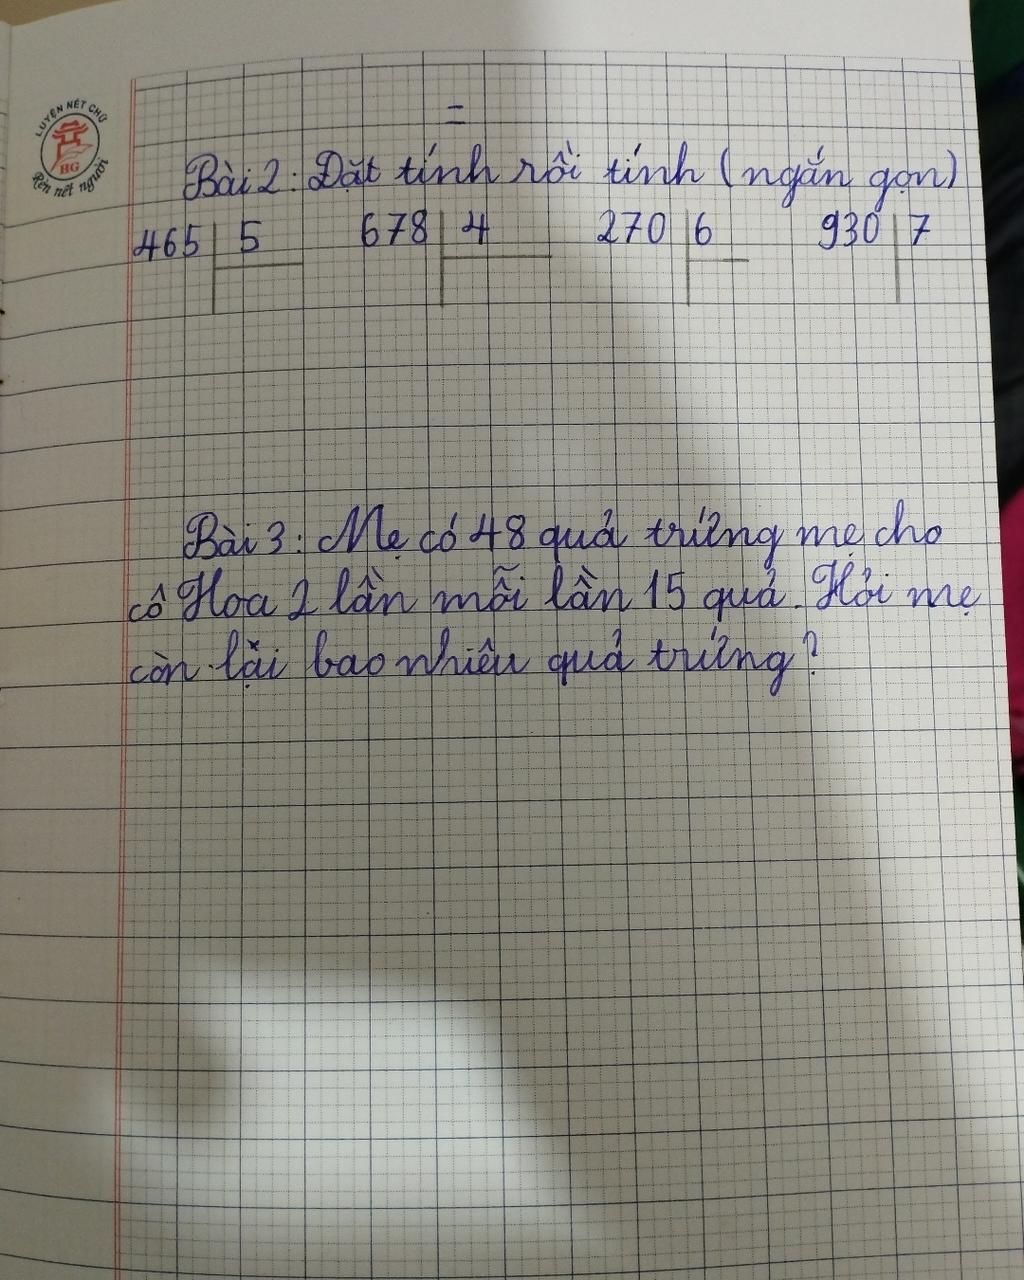 LUYỆN NÉT CHỮ
BG
Rèn nết người
=
Bài 2: Đặt tính rồi tính (ngắn gọn)
465 5 678 4 270 6 930 7
Bài 3: Mẹ có 48 quả trứng mẹ cho
cô Hoa 2 lần mỗi lần 15 quả. Hỏi mẹ
còn lại bao nhiêu quả trứng?